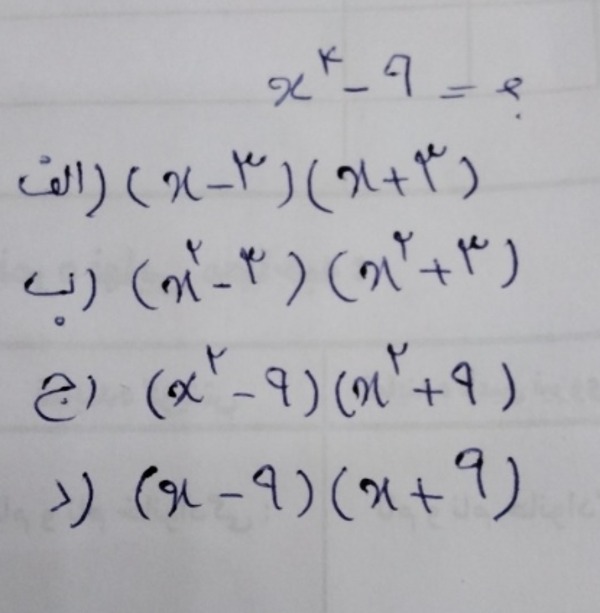 x^۴ - ۹ = ؟
الف) (x-۳)(x+۳)
ب) (x^۲-۳)(x^۲+۳)
ج) (x^۲-۹)(x^۲+۹)
د) (x-۹)(x+۹)